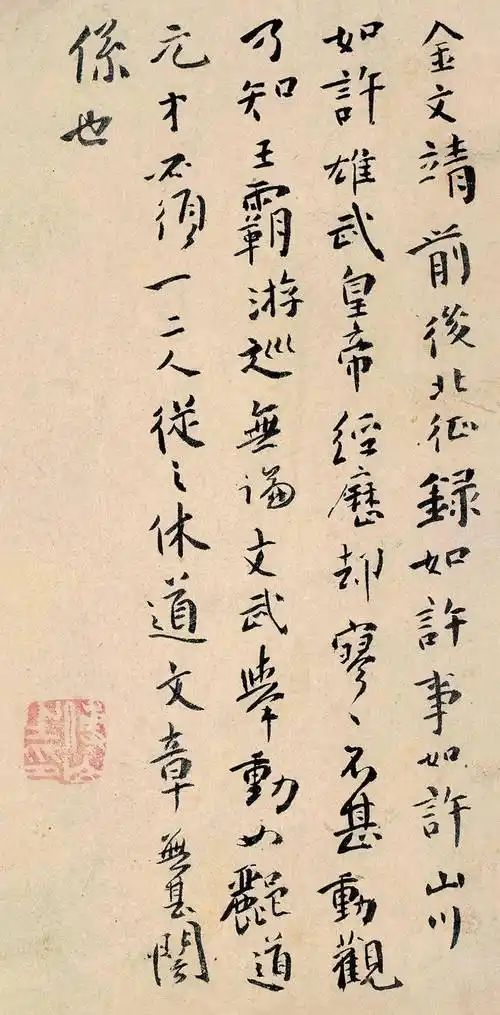 金文靖前後北征録如許事如許山川
如許雄武皇帝經歷却寥〻不甚動觀
乃知王霸游巡無論文武舉動如酈道
元才不須一二人從之休道文章無甚關
係也